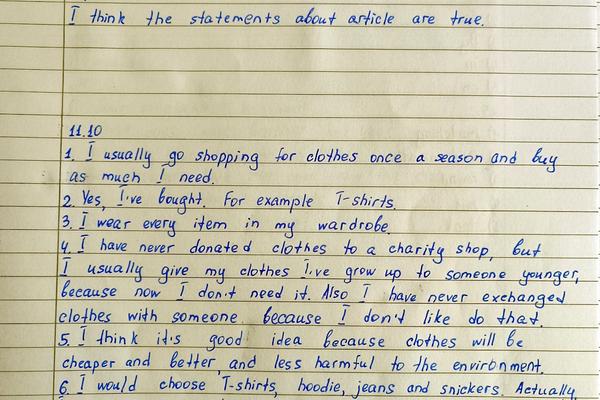 I think the statements about article are true.
11.10
1. I usually go shopping for clothes once a season and buy
as much I need.
2. Yes, I've bought. For example T-shirts.
3. I wear every item in my wardrobe.
4. I have never donated clothes to a charity shop, but
I usually give my clothes I've grow up to someone younger,
because now I don't need it. Also I have never exchanged
clothes with someone because I don't like do that.
5. I think it's good idea because clothes will be
cheaper and better, and less harmful to the environment.
6. I would choose T-shirts, hoodie, jeans and snickers. Actually